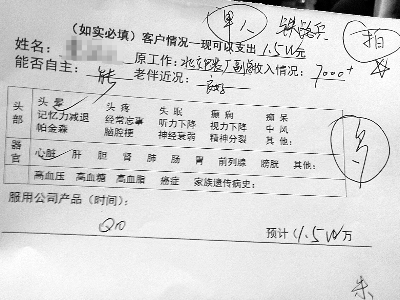 单人 铁路兵 拍
(如实必填)客户情况—现可以支出1.5W元
姓名:
原工作: 收入情况:7000+
能否自主:能 老伴近况:
头部
头晕 头疼 失眠 癫痫 痴呆
记忆力减退 经常忘事 听力下降 视力下降 中风
帕金森 脑腔梗 神经衰弱 精神分裂 其他:
器官
心脏 肝 胆 肾 肺 肠 胃 前列腺 膀胱 其他:
高血压 高血糖 高血脂 癌症 家族遗传病史:
服用公司产品(时间):
Q10
预计1.5W万